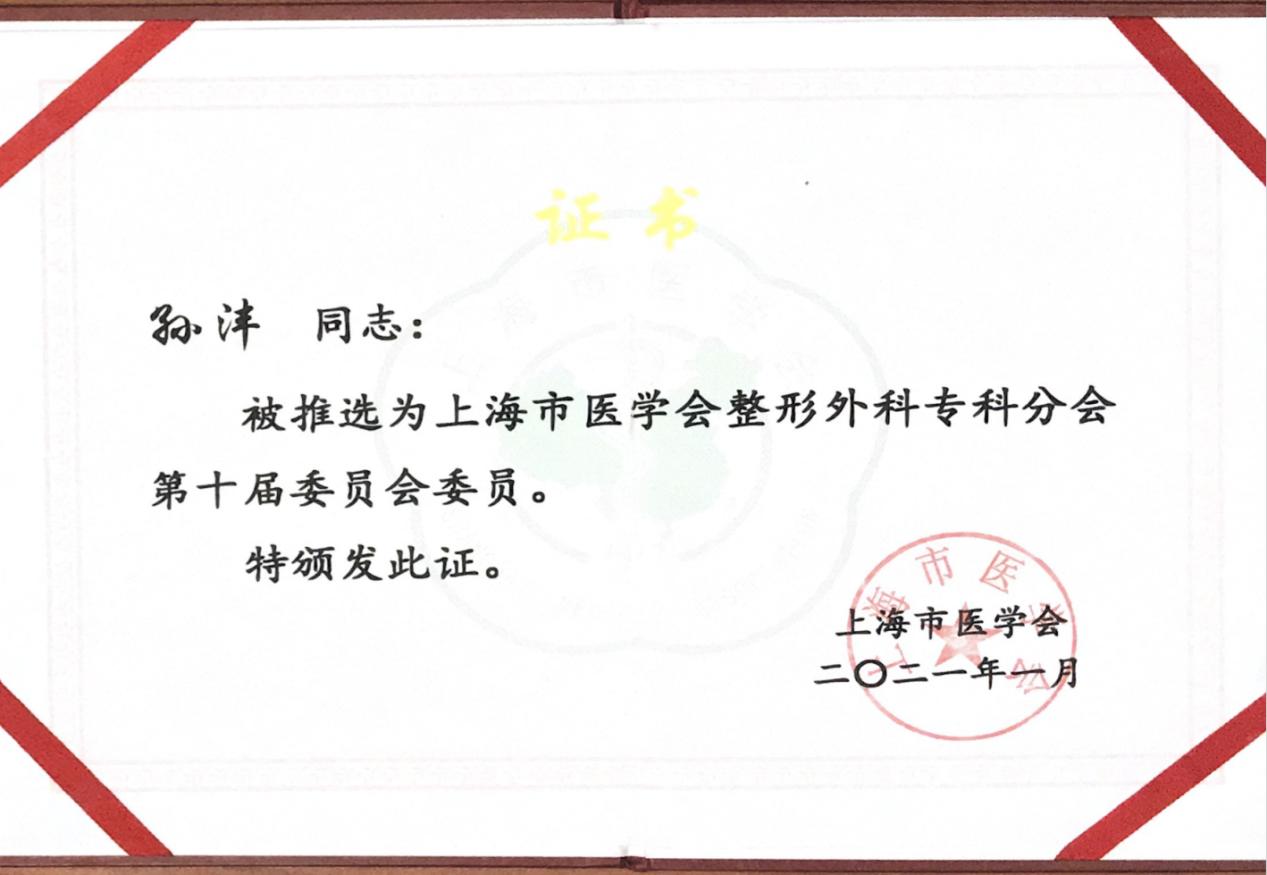 证书
孙沣 同志：
被推选为上海市医学会整形外科专科分会
第十届委员会委员。
特颁发此证。
上海市医学会
二〇二一年一月
上海市医学会